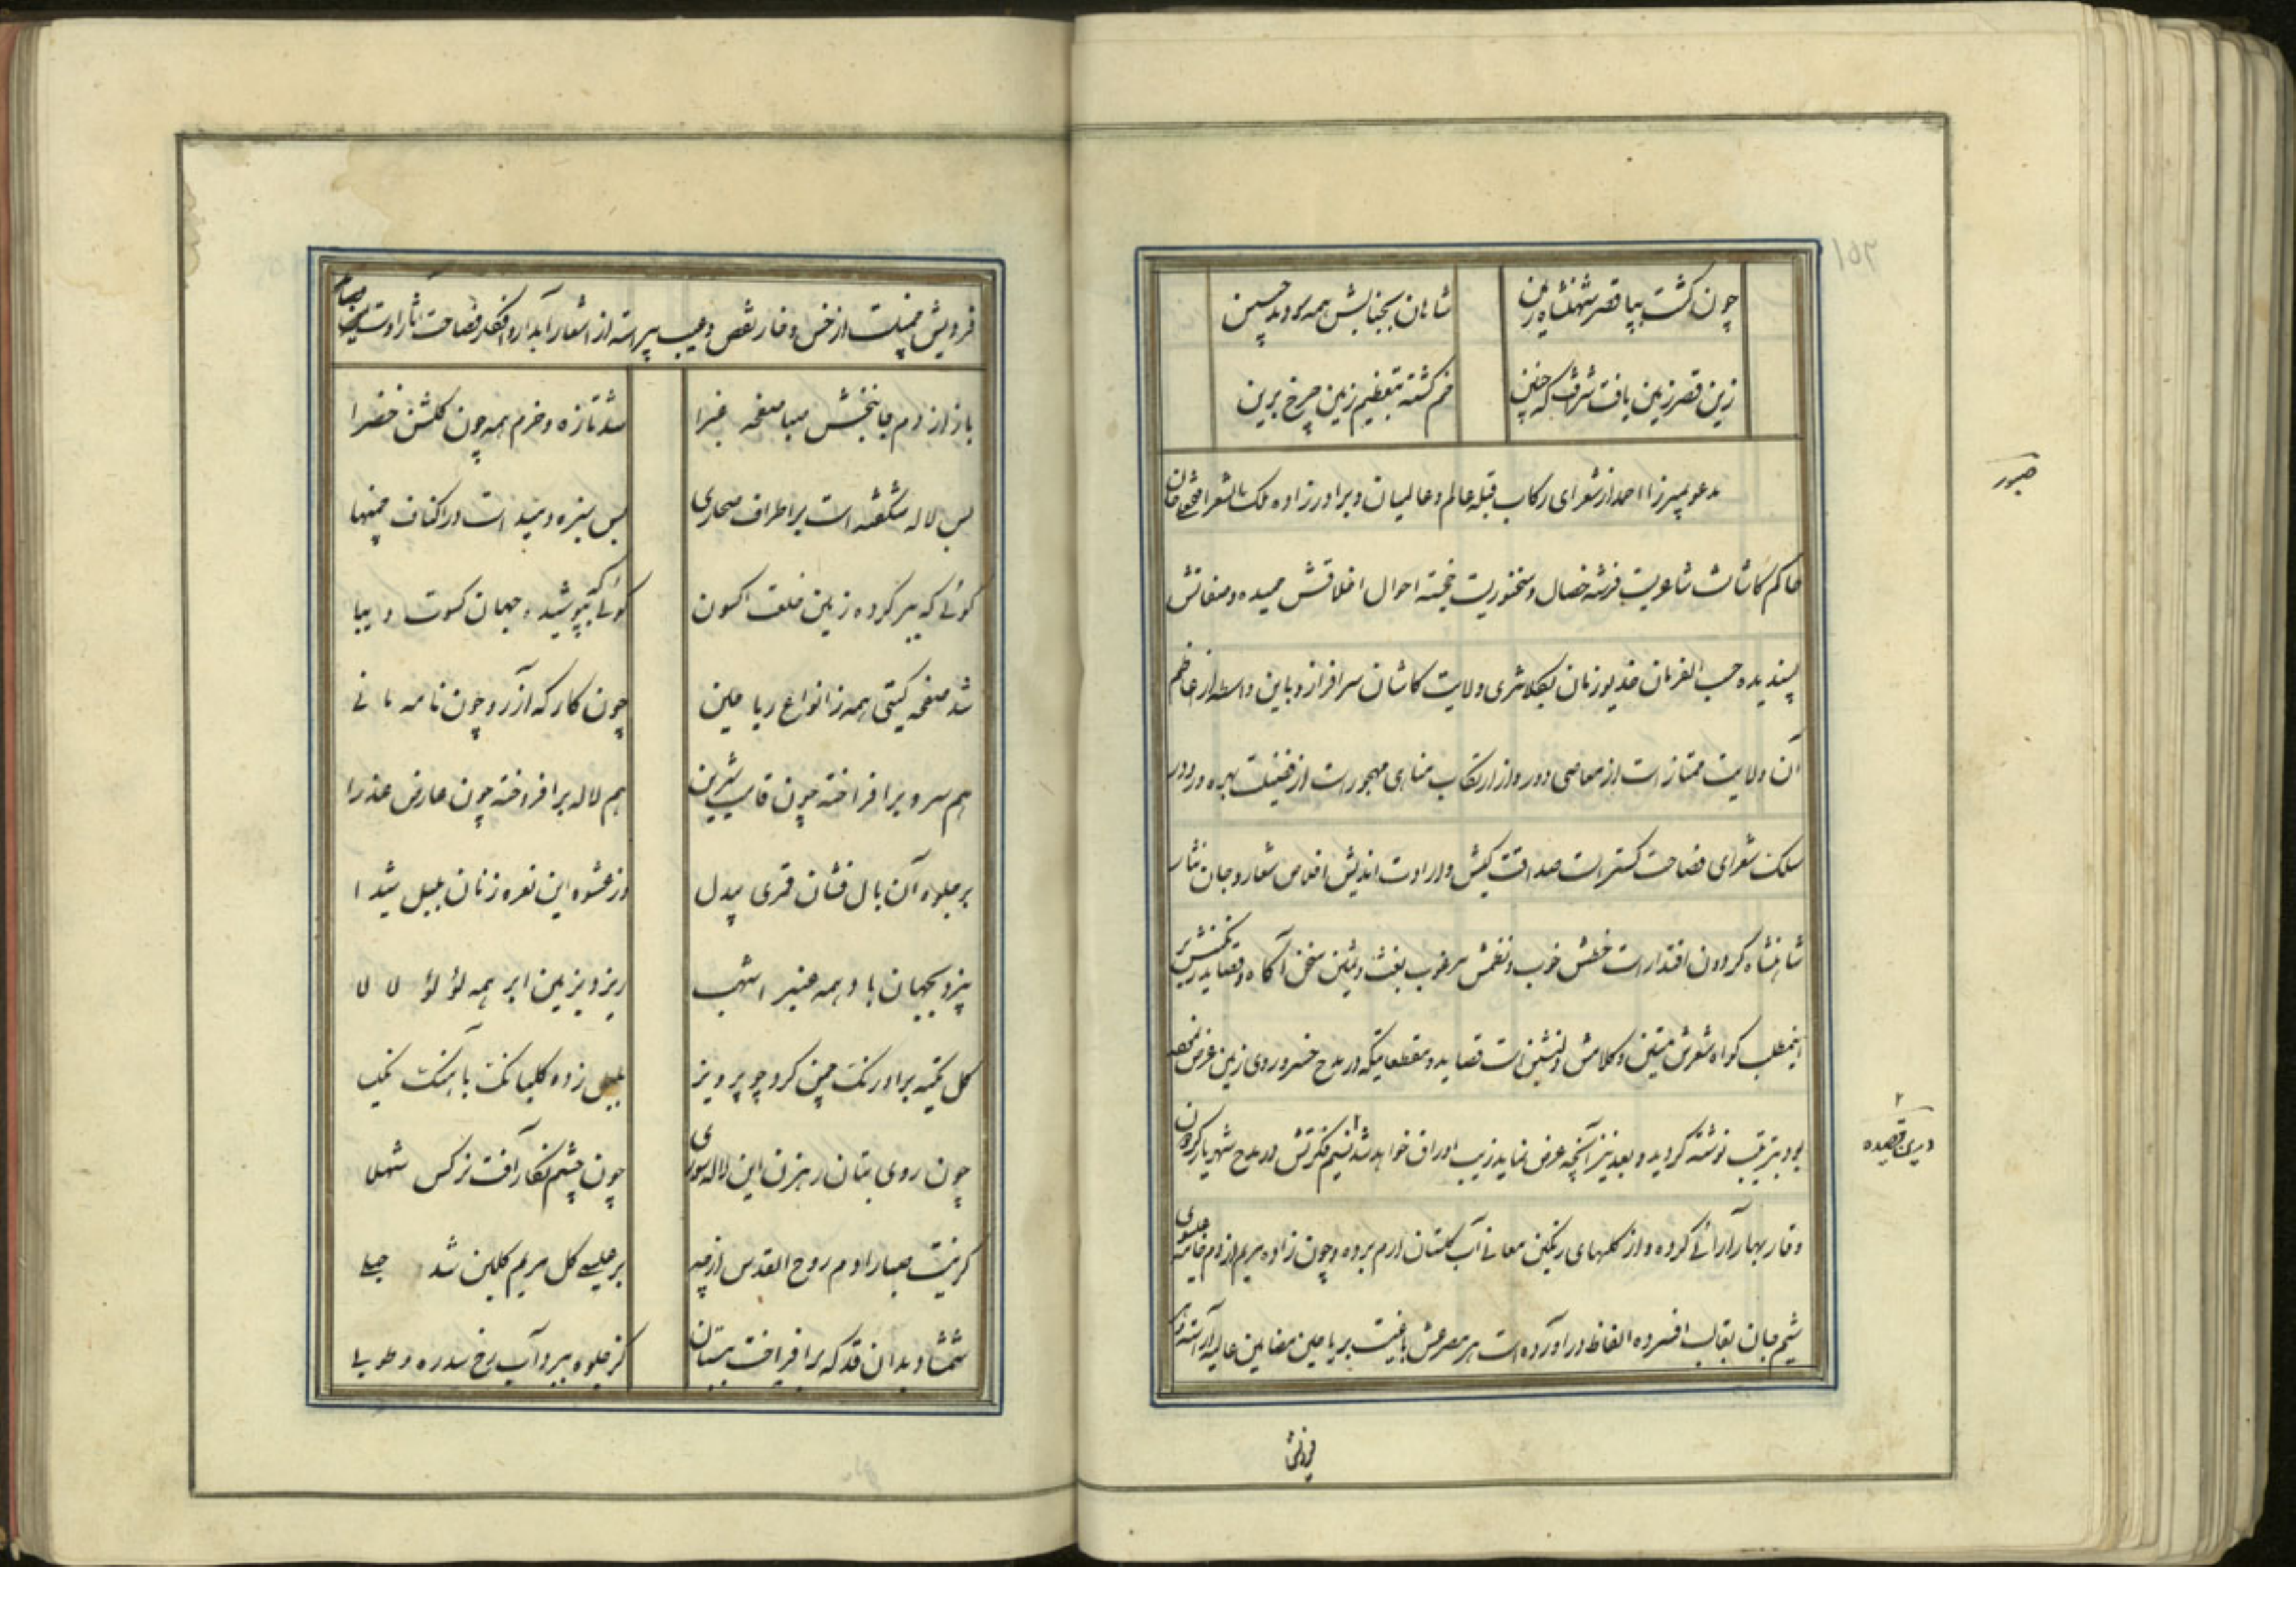 چون گشت بپا قصر شهنشاه زمین شاهان بجنابش همه سودند جبین
زین قصر زمین یافت شرف که چنین خم گشته بتعظیم زمین چرخ برین
صبور
مدعو بمیرزا احمد از شعرای رکاب قبله عالم و عالمیان و برادرزاده ملک الشعرا فتحعلی خان
حاکم کاشان شاعریست فرشته خصال و سخنوریست خجسته احوال اخلاقش حمیده و صفاتش
پسندیده حسب الفرمان خدیو زمان بکلانتری ولایت کاشان سرافراز و باین واسطه از اعاظم
آن ولایت ممتاز است از معاصی دور و از ارتکاب مناهی مهجور است از فضیلت بهره ور و در
سلک شعرای فصاحت گستر است صداقت کیش و ارادت اندیش اخلاص شعار و جان نثار
شاهنشاه گردون اقتدار است خطش خوب و نظمش مرغوب بغث و ثمین سخن آگاه و قصاید رنگینش بر
اینمطلب گواه شعرش متین و کلامش دلنشین است قصاید و مقطعاتیکه در مدح خسرو روی زمین عرض نموده
بود بترتیب نوشته گردید و بعد نیز آنچه عرض نماید زیب اوراق خواهد شد نسیم فکرتش در مدح شهریار گردون
در این قصیده
وقار بهار آرائی کرده و از گلهای رنگین معانی آب گلستان ارم برده و چون زاده مریم از دم خامه عیسوی
شیم جان بقالب افسرده الفاظ در آورده است هر مصرعش باغیست بریاحین مضامین عالیه آراسته
فردوسی
فردوسیست از خس و خار نقص و عیب پیراسته از اشعار آبدار و افکار فصاحت آثار اوست
باز از دم جانبخش صبا صفحه غبرا شد تازه و خرم همه چون گلشن خضرا
بس لاله شگفته است بر اطراف صحاری بس سبزه دمیده است در اکناف چمنها
گوئی که ببر کرده زمین خلعت اکسون گوئی که بپوشیده جهان کسوت دیبا
شد صفحه گیتی همه ز انواع ریاحین چون کارگه آزر و چون نامه مانی
هم سرو برافراخته چون قامت شیرین هم لاله برافروخته چون عارض عذرا
بر جلوه آن بال فشان قمری بیدل وز عشوه این نعره زنان بلبل شیدا
بیزد بجهان باد همه عنبر اشهب ریزد بزمین ابر همه لؤلؤ لالا
گل تکیه بر اورنگ چمن کرد چو پرویز بلبل زده گلبانک باهنک نکیسا
چون روی بتان رهزن این لاله سوری چون چشم نگار آفت نرگس شهلا
گر نیست صبا را دم روح القدس از چه بر عیسی گل مریم گلبن شد حبلی
شمشاد بدان قد که برافراخت ببستان کز جلوه ببرد آب رخ سدره و طوبی